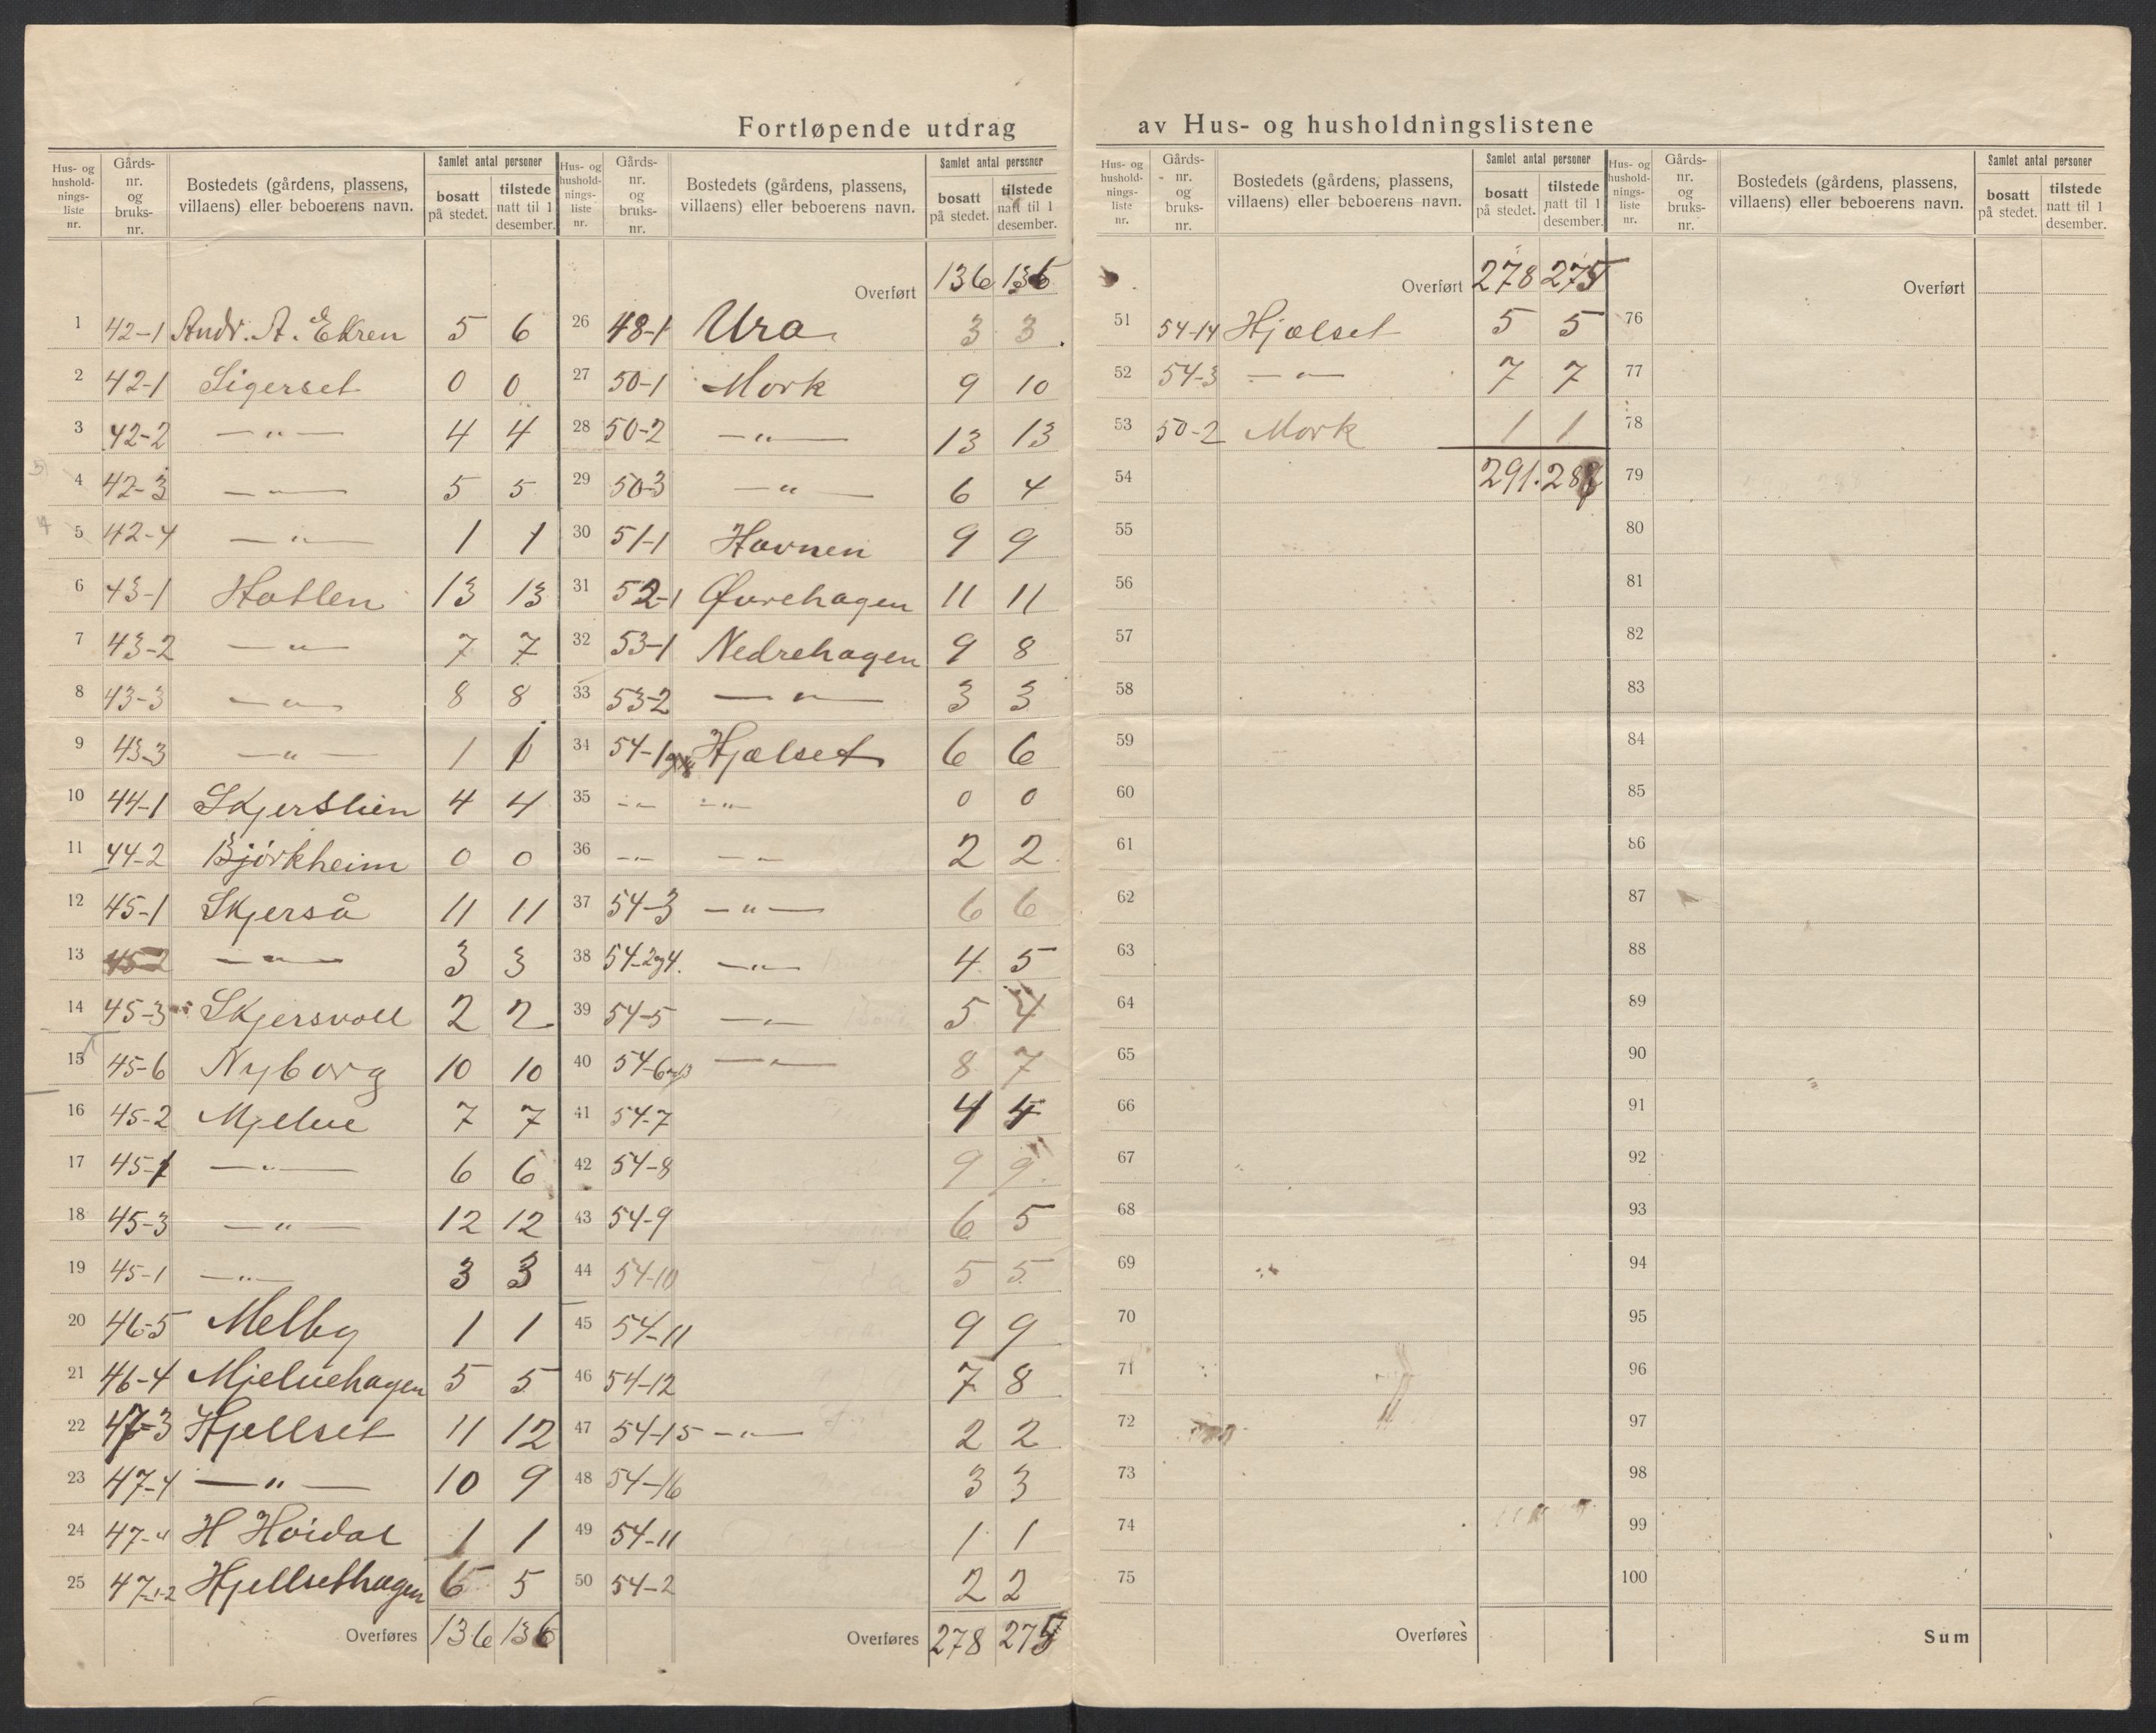 Fortløpende utdrag av Hus- og husholdningslistene
Hus- og hushold-nings-liste nr. | Gårds-nr. og bruks-nr. | Bostedets (gårdens, plassens, villaens) eller beboerens navn. | Samlet antal personer | bosatt på stedet. | tilstede natt til 1 desember.
1 42-1 Andr. A. Ekren 5 6
2 42-1 Sigerset 0 0
3 42-2 —"— 4 4
4 42-3 —"— 5 5
5 42-4 —"— 1 1
6 43-1 Hatlen 13 13
7 43-2 —"— 7 7
8 43-3 —"— 8 8
9 43-3 —"— 1 1
10 44-1 Skjerslien 4 4
11 44-2 Björkheim 0 0
12 45-1 Skjerså 11 11
13 45-2 —"— 3 3
14 45-3 Skjersvoll 2 2
15 45-6 Nyborg 10 10
16 45-2 Mjelve 7 7
17 45-1 —"— 6 6
18 45-3 —"— 12 12
19 45-1 —"— 3 3
20 46-5 Melby 1 1
21 46-4 Mjelvehagen 5 5
22 47-3 Hjellset 11 12
23 47-4 —"— 10 9
24 47-4 H Hoidal 1 1
25 47-1-2 Hjellsethagen 6 5
Overføres 136 136
Hus- og hushold-nings-liste nr. | Gårds-nr. og bruks-nr. | Bostedets (gårdens, plassens, villaens) eller beboerens navn. | Samlet antal personer | bosatt på stedet. | tilstede natt til 1 desember.
Overført 136 136
26 48-1 Ura 3 3
27 50-1 Mork 9 10
28 50-2 —"— 13 13
29 50-3 —"— 6 4
30 51-1 Havnen 9 9
31 52-1 Øvrehagen 11 11
32 53-1 Nedrehagen 9 8
33 53-2 —"— 3 3
34 54-1 Hjelset 6 6
35 —"— —"— 0 0
36 —"— —"— 2 2
37 54-3 —"— 6 6
38 54-2og4. —"— 4 5
39 54-5 —"— 5 4
40 54-6og13 —"— 8 7
41 54-7 4 4
42 54-8 9 9
43 54-9 6 5
44 54-10 5 5
45 54-11 9 9
46 54-12 7 8
47 54-15 —"— 2 2
48 54-16 3 3
49 54-11 1 1
50 54-2 2 2
Overføres 278 275
Hus- og hushold-nings-liste nr. | Gårds-nr. og bruks-nr. | Bostedets (gårdens, plassens, villaens) eller beboerens navn. | Samlet antal personer | bosatt på stedet. | tilstede natt til 1 desember.
Overført 278 275
51 54-14 Hjelset 5 5
52 54-3 —"— 7 7
53 50-2 Mork 1 1
54 291. 288
55
56
57
58
59
60
61
62
63
64
65
66
67
68
69
70
71
72
73
74
75
Overføres
Hus- og hushold-nings-liste nr. | Gårds-nr. og bruks-nr. | Bostedets (gårdens, plassens, villaens) eller beboerens navn. | Samlet antal personer | bosatt på stedet. | tilstede natt til 1 desember.
Overført
76
77
78
79
80
81
82
83
84
85
86
87
88
89
90
91
92
93
94
95
96
97
98
99
100
Sum